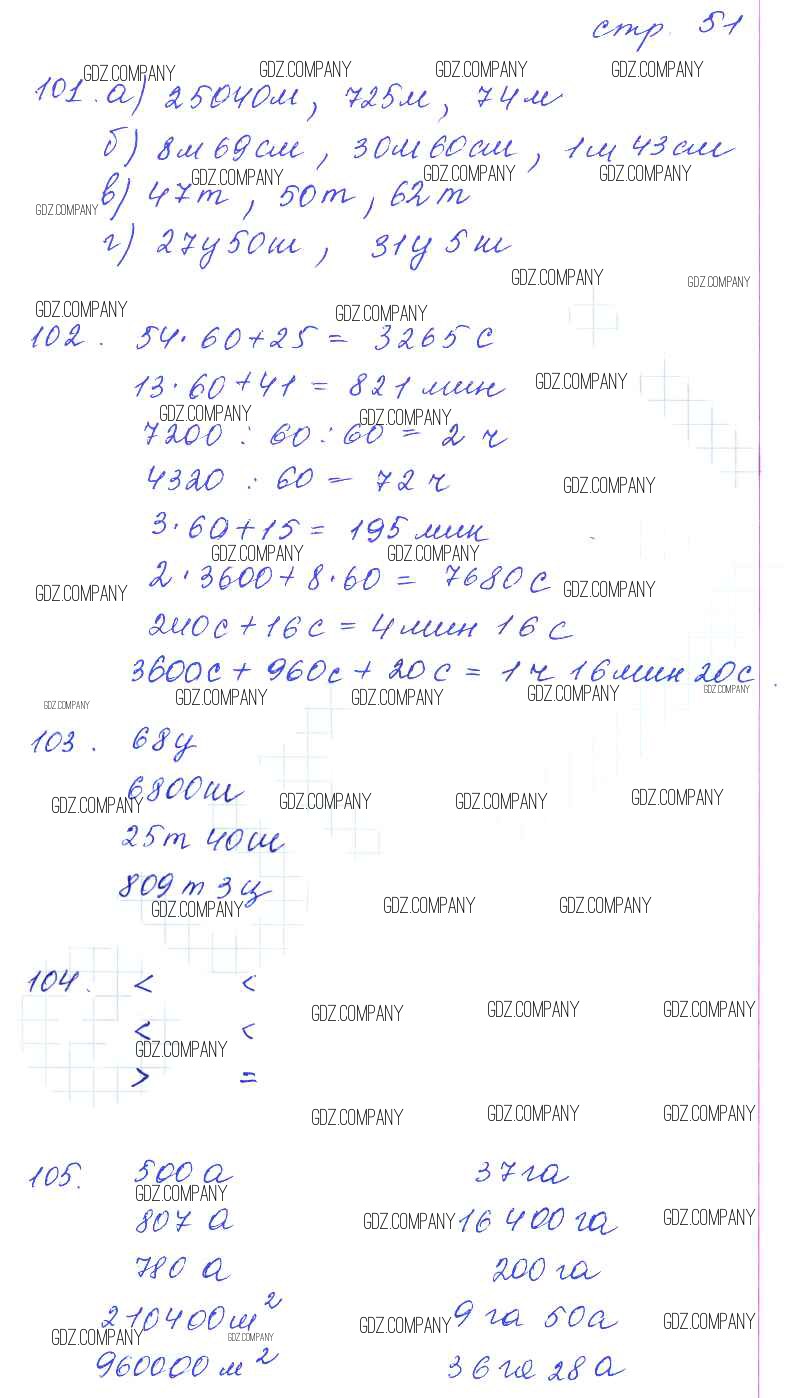 стр. 51
GDZ.COMPANY GDZ.COMPANY GDZ.COMPANY GDZ.COMPANY
101. а) 25040м, 725м, 74м
б) 8м 69см, 30м 60см, 1м 43см
GDZ.COMPANY GDZ.COMPANY GDZ.COMPANY
в) 47т, 50т, 62т
GDZ.COMPANY
г) 27у 50ш, 31у 5ш
GDZ.COMPANY GDZ.COMPANY
GDZ.COMPANY GDZ.COMPANY
102. 54·60+25 = 3265 с
13·60+41 = 821 мин
GDZ.COMPANY
GDZ.COMPANY GDZ.COMPANY
7200 : 60 : 60 = 2 ч
4320 : 60 = 72 ч
GDZ.COMPANY
3·60+15 = 195 мин
GDZ.COMPANY GDZ.COMPANY
2·3600+8·60 = 7680 с
GDZ.COMPANY GDZ.COMPANY
240с + 16с = 4 мин 16 с
3600с + 960с + 20с = 1 ч 16 мин 20с.
GDZ.COMPANY GDZ.COMPANY GDZ.COMPANY GDZ.COMPANY GDZ.COMPANY
103. 68у
6800ш
GDZ.COMPANY GDZ.COMPANY GDZ.COMPANY GDZ.COMPANY
25т 40ш
809 т 3 ц
GDZ.COMPANY GDZ.COMPANY GDZ.COMPANY
104. < <
GDZ.COMPANY GDZ.COMPANY GDZ.COMPANY
< <
GDZ.COMPANY
> =
GDZ.COMPANY GDZ.COMPANY GDZ.COMPANY
105. 500 а 37 га
GDZ.COMPANY
807 а 16400 га
GDZ.COMPANY GDZ.COMPANY
780 а 200 га
210400 м² 9 га 50а
GDZ.COMPANY GDZ.COMPANY GDZ.COMPANY GDZ.COMPANY
960000 м² 36 га 28 а